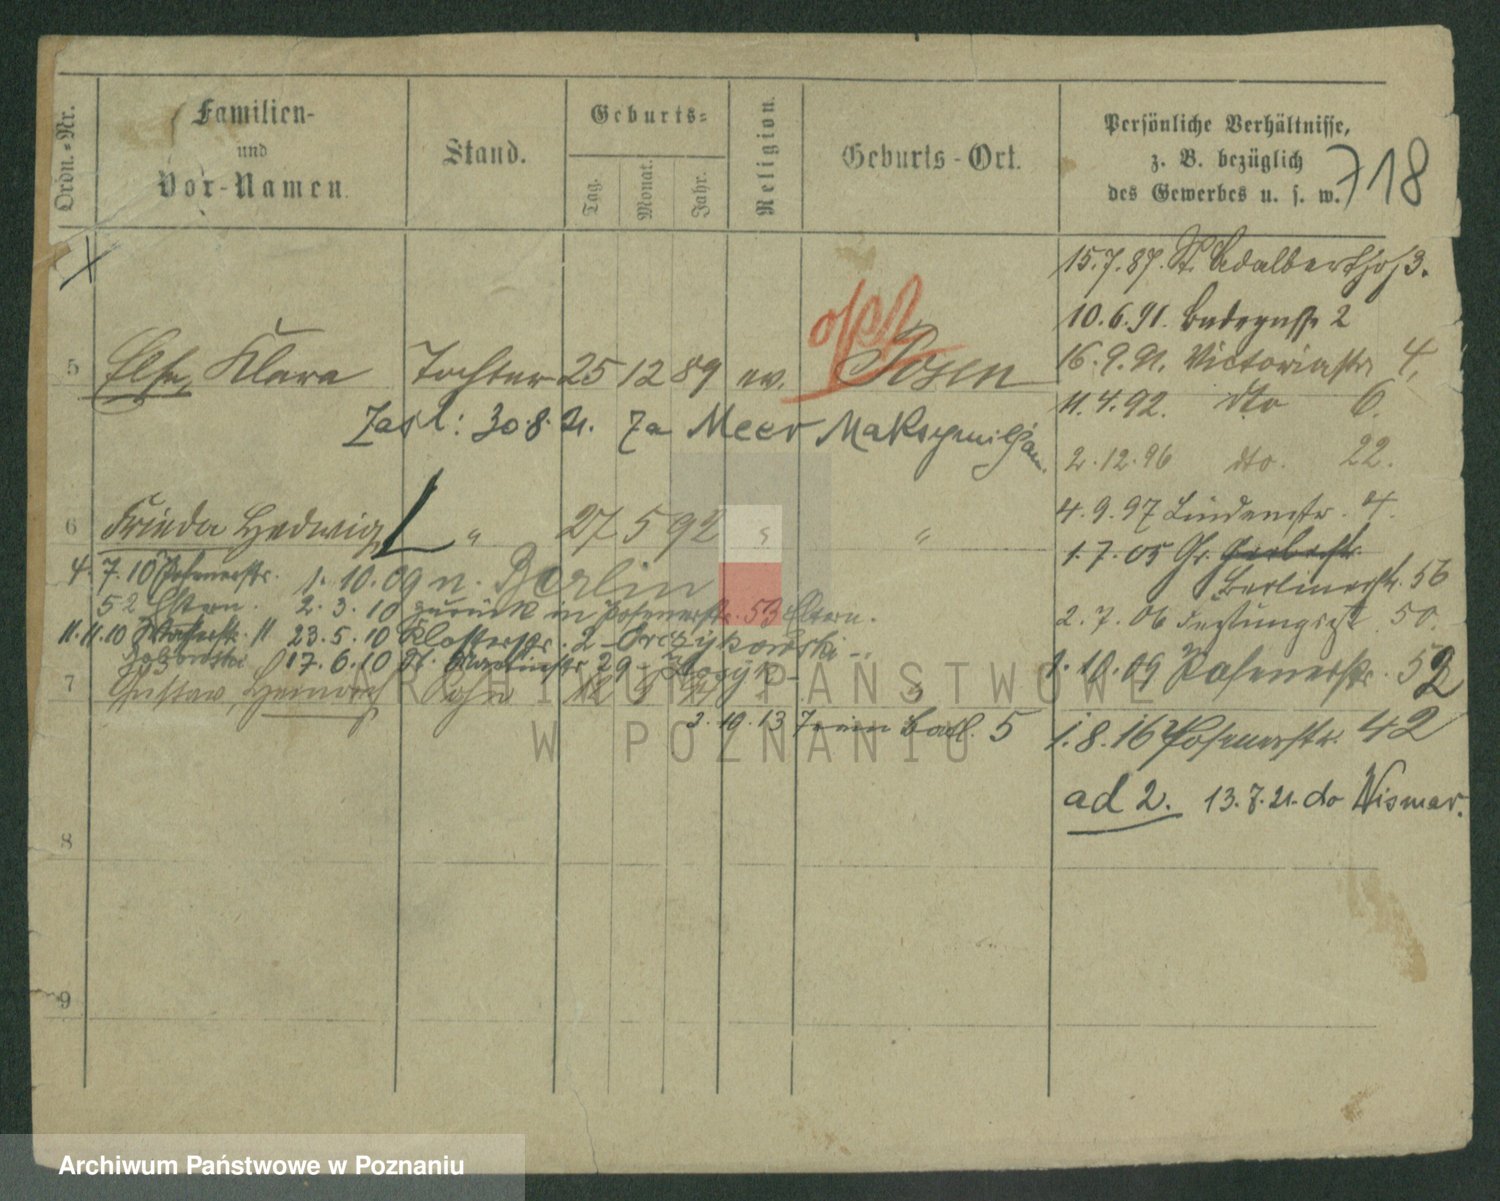 Ordn.-Nr.
Familien-
und
Vor-Namen.
Stand.
Geburts-
Tag.
Monat.
Jahr.
Religion.
Geburts-Ort.
Persönliche Verhältnisse,
z. B. bezüglich
des Gewerbes u. s. w.
718
15.7.87. St. Adalberthof 3.
10.6.91. 2
16.9.91. Victoriastr 4.
11.4.92. dto 6.
2.12.96 dto. 22.
4.9.97 Lindenstr. 4.
1.7.05 Gr. Gerberstr.
Berlinerstr. 56
2.7.06 50.
1.10.09 Posenerstr. 52
1.8.16 Posenerstr. 42
ad 2. 13.7.21. do Wismar.
5 Else, Klara Tochter 25 12 89 ev. Posen
Zaśl: 30.8.21. za Meer Maksymiljan.
6 Frieda Hedwig " 27 5 92 "
4.7.10 Posenerstr. 1.10.09 n. Berlin
52 Eltern. 2.3.10 zurück in Posenerstr. 53 Eltern.
11.11.10 23.5.10 Klosterstr. 2
17.6.10 St. Martinstr. 29
7 Gustav, Heinrich Sohn 12
3.10.13 5
8
9
ARCHIWUM PAŃSTWOWE
W POZNANIU
Archiwum Państwowe w Poznaniu